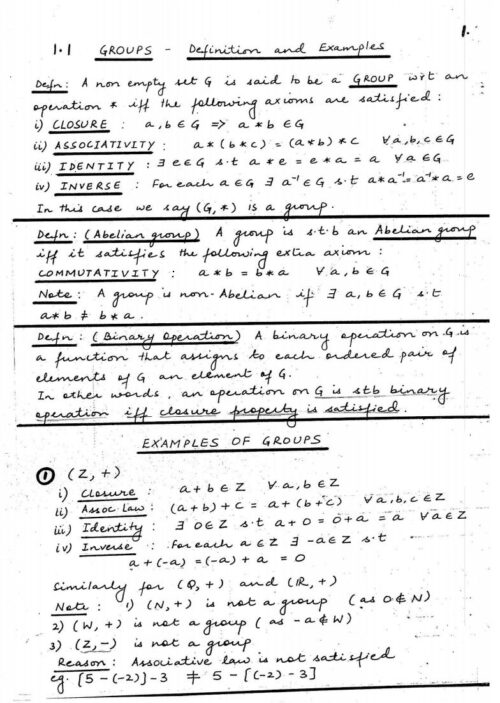 1.
1.1 GROUPS - Definition and Examples
Defn: A non empty set G is said to be a GROUP wrt an
operation * iff the following axioms are satisfied :
i) CLOSURE : a, b ∈ G => a * b ∈ G
ii) ASSOCIATIVITY : a * (b * c) = (a * b) * c ∀ a, b, c ∈ G
iii) IDENTITY : ∃ e ∈ G s.t a * e = e * a = a ∀ a ∈ G
iv) INVERSE : For each a ∈ G ∃ a⁻¹ ∈ G s.t a * a⁻¹ = a⁻¹ * a = e
In this case we say (G, *) is a group.
Defn : (Abelian group) A group is s.t.b an Abelian group
iff it satisfies the following extra axiom :
COMMUTATIVITY : a * b = b * a ∀ a, b ∈ G
Note : A group is non-Abelian if ∃ a, b ∈ G s.t
a * b ≠ b * a .
Defn : (Binary Operation) A binary operation on G is
a function that assigns to each ordered pair of
elements of G an element of G.
In other words , an operation on G is stb binary
operation iff closure property is satisfied.
EXAMPLES OF GROUPS
① (Z, +)
i) Closure : a + b ∈ Z ∀ a, b ∈ Z
ii) Assoc Law : (a + b) + c = a + (b + c) ∀ a, b, c ∈ Z
iii) Identity : ∃ 0 ∈ Z s.t a + 0 = 0 + a = a ∀ a ∈ Z
iv) Inverse : For each a ∈ Z ∃ -a ∈ Z s.t
a + (-a) = (-a) + a = 0
Similarly for (Q, +) and (R, +)
Note : 1) (N, +) is not a group (as 0 ∉ N)
2) (W, +) is not a group (as -a ∉ W)
3) (Z, -) is not a group
Reason : Associative law is not satisfied
eg. [5 - (-2)] - 3 ≠ 5 - [(-2) - 3]